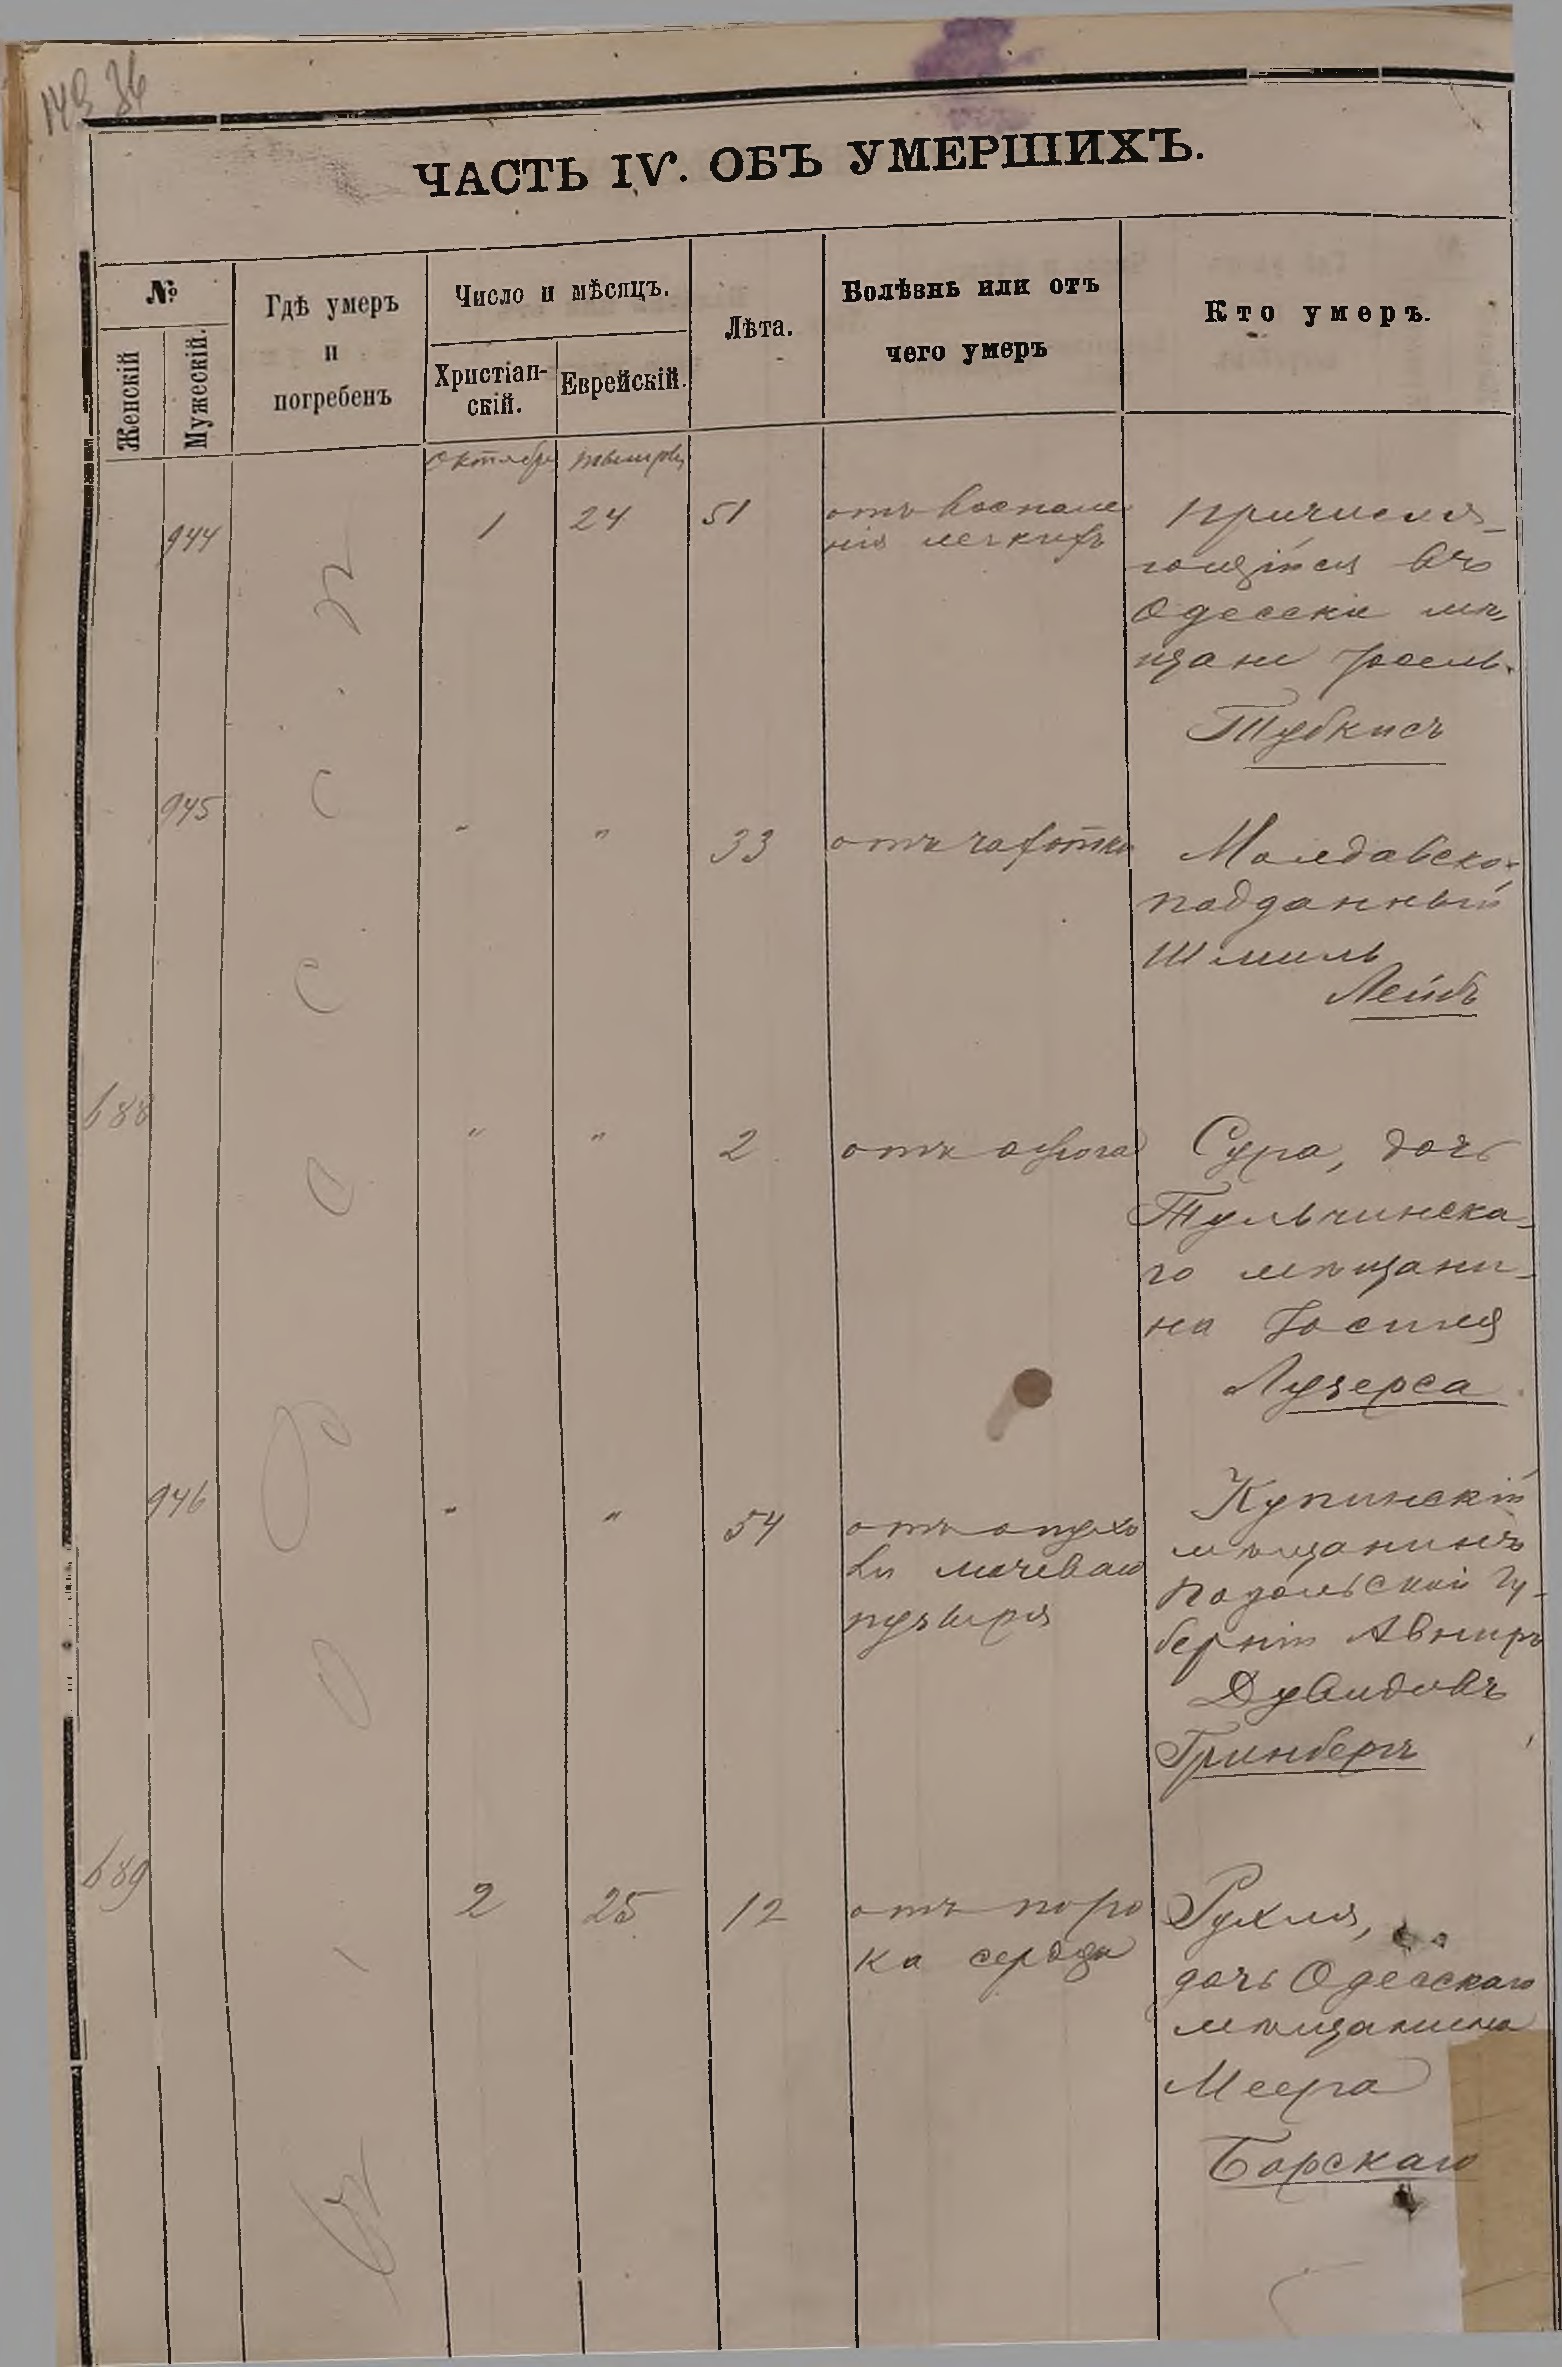 143 36
ЧАСТЬ IV. ОБЪ УМЕРШИХЪ.
№
Женскій
Мужескій.
Гдѣ умеръ
и
погребенъ
Число и мѣсяцъ.
Христіан-
скій.
Еврейскій.
Лѣта.
Болѣзнь или отъ
чего умеръ
Кто умеръ.
Въ Одессѣ
Октября
944
1
24
51
отъ воспале
нія легкихъ
Причисля-
ющійся въ
Одесскіе мѣ
щане Іосель
Тубкисъ
945
"
"
33
отъ чахотки
Молдавско-
подданный
Шмиль
Лейбъ
688
"
"
2
отъ ожога
Сура, дочь
Тульчинска-
го мѣщани-
на Іосиля
Лузерса
946
"
"
54
отъ опухо
ли мочеваго
пузыря
Купинскій
мѣщанинъ
Подольской Гу-
берніи Авнеръ
Дувидовъ
Гринбергъ
689
2
25
12
отъ поро
ка сердца
Рухля,
дочь Одесскаго
мѣщанина
Меера
Борскаго